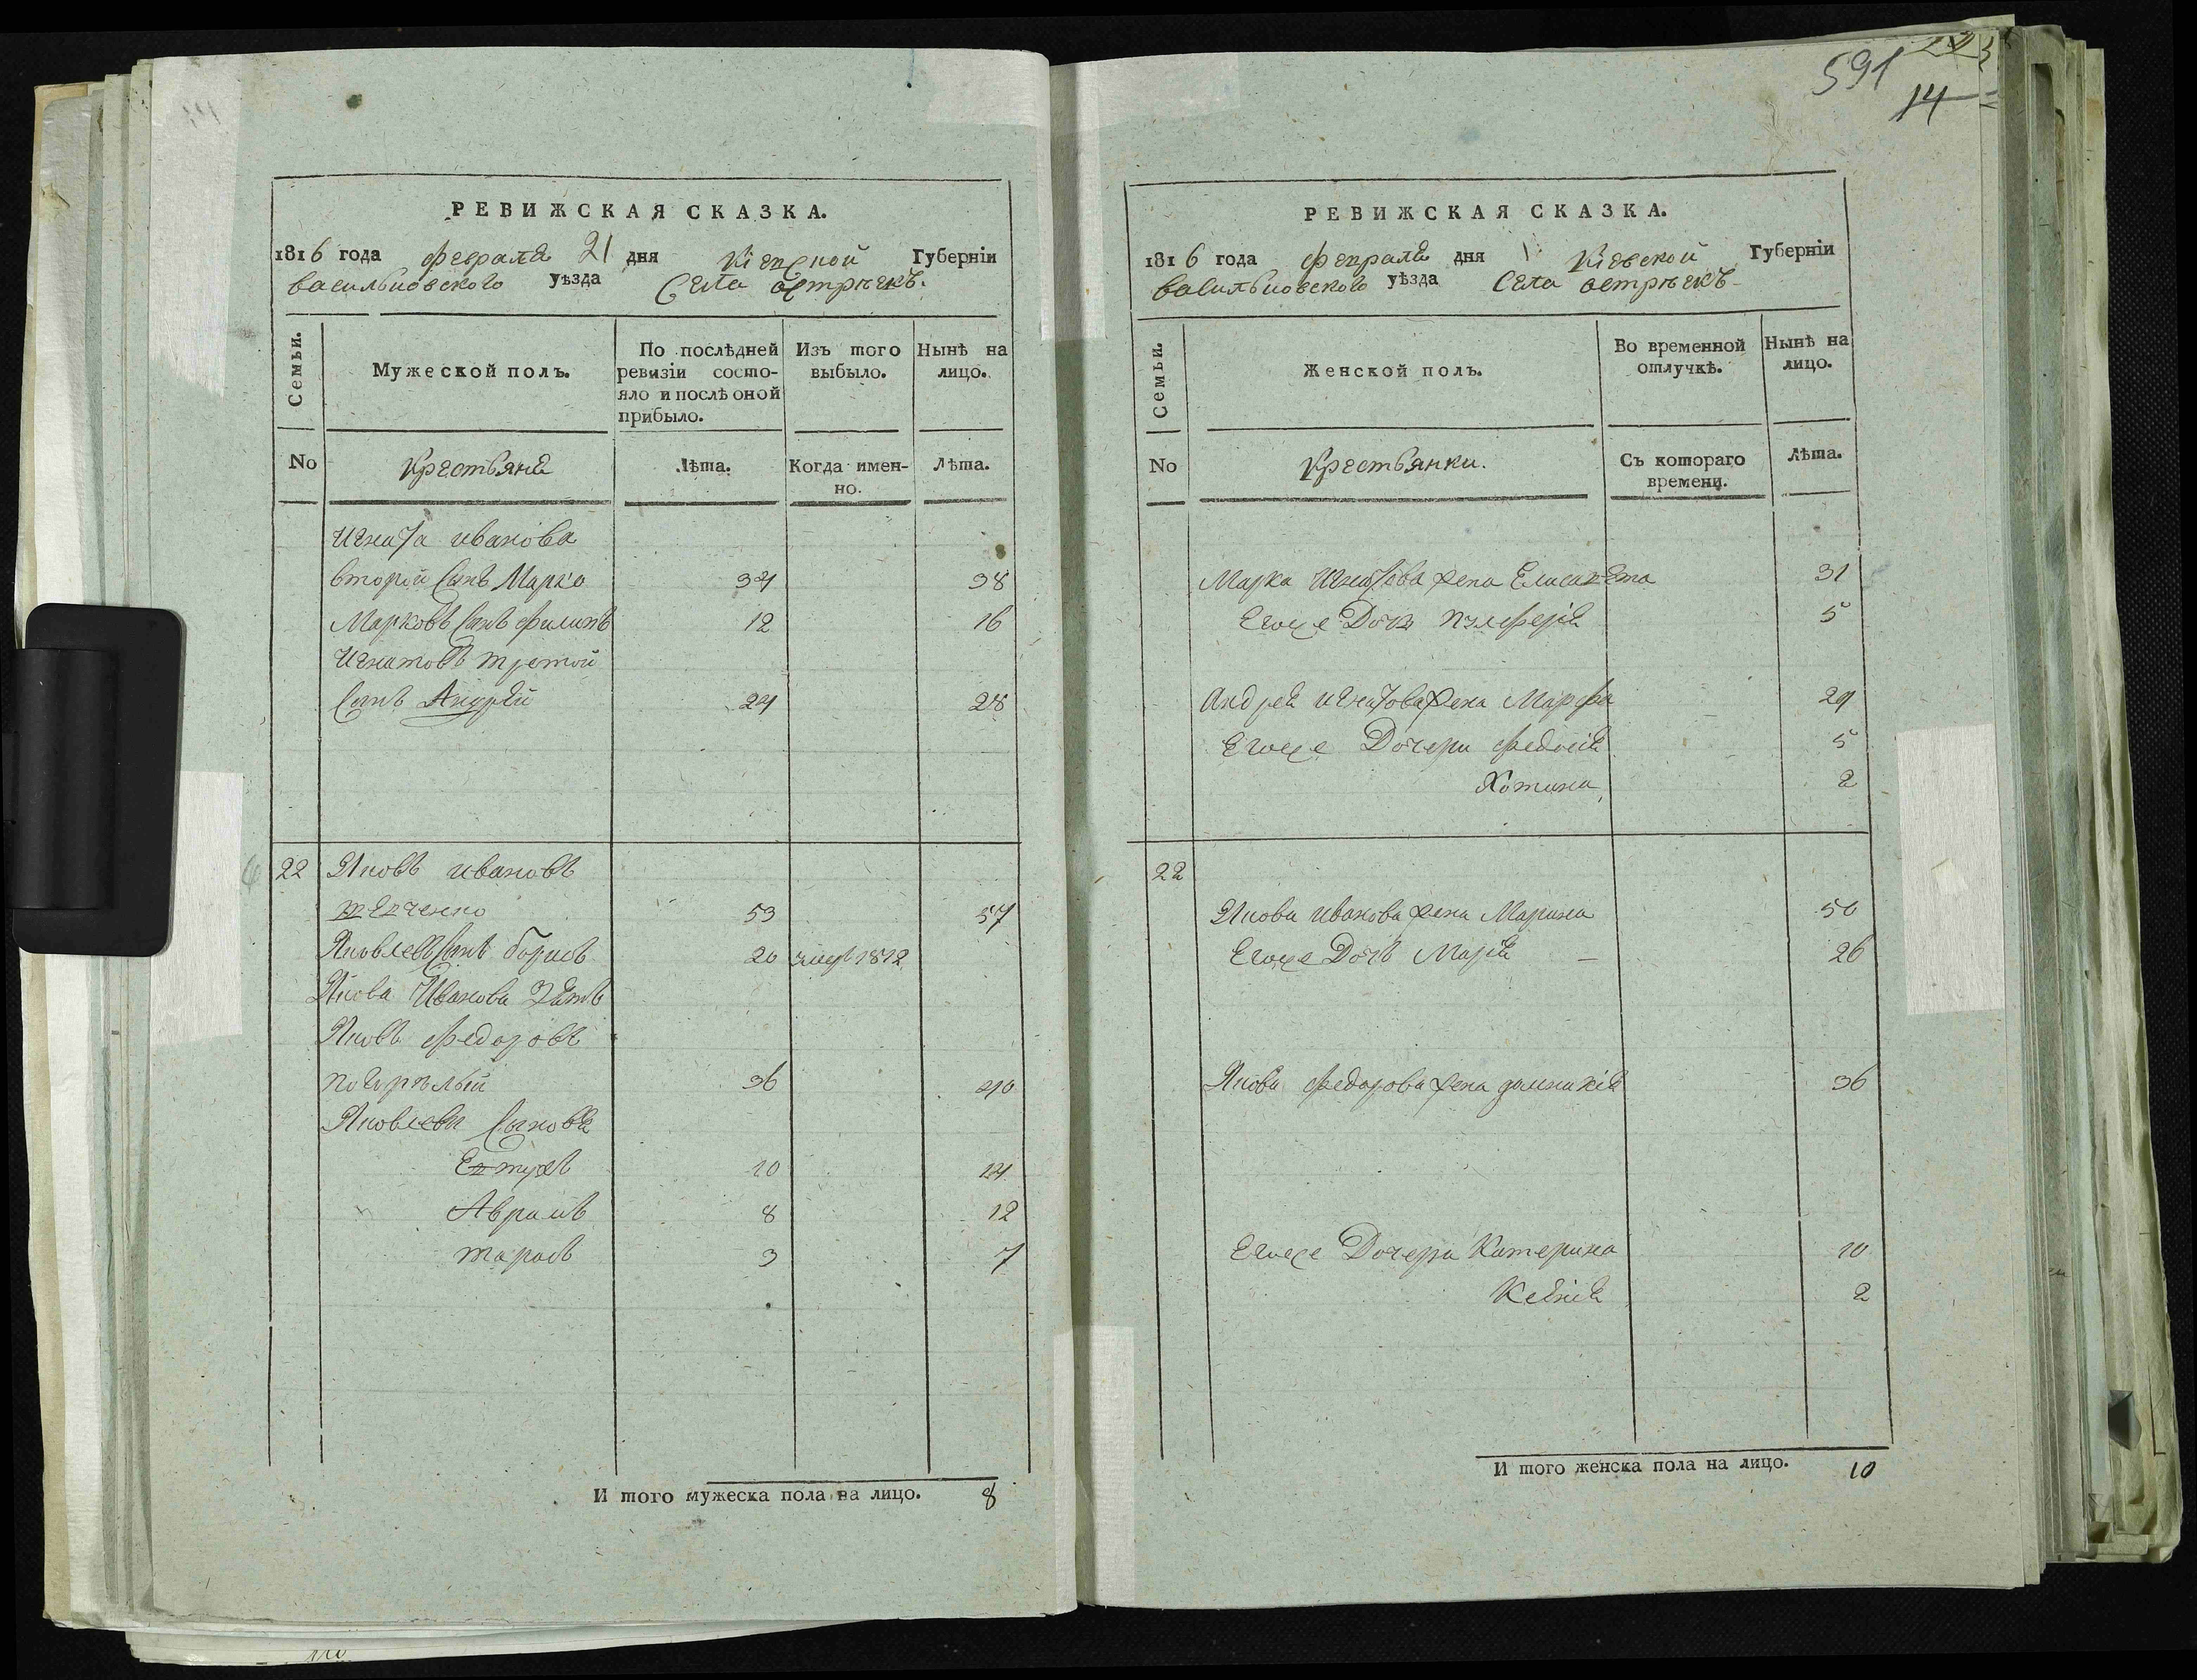 РЕВИЖСКАЯ СКАЗКА.
1816 года февраля 21 дня Кіевской Губерніи
васильковского уѣзда Села острѣекъ.
Семьи.
Мужеской полъ.
По послѣдней ревизіи состояло и послѣ оной прибыло.
Изъ того выбыло.
Нынѣ на лицо.
No
Крестьяне
Лѣта.
Когда именно.
Лѣта.
Игната иванова
второй сынъ Марко 34 38
Марковъ сынъ филипъ 12 16
Игнатовъ третой
сынъ Андрей 24 28
22 Яковъ ивановъ
шевченко 53 57
Яковлевъ сынъ борисъ 20 1812
Якова Иванова зять
Яковъ федоровъ
погорѣлый 36 40
Яковлевы сыновья
Евтухъ 10 14
Аврамъ 8 12
тарасъ 3 7
И того мужеска пола на лицо. 8
591
14
РЕВИЖСКАЯ СКАЗКА.
1816 года февраля дня Кіевской Губерніи
васильковского уѣзда Села острѣекъ
Семьи.
Женской полъ.
Во временной отлучкѣ.
Нынѣ на лицо.
No
Крестьянки.
Съ котораго времени.
Лѣта.
Марка Игнатова жена Елисавета 31
Егоже Дочь 5
Андрея игнатова жена Марфа 24
Егоже Дочери федосія 5
Хотина 2
22
Якова иванова жена Марина 50
Егоже Дочь Марія 26
Якова федорова жена 36
Егоже Дочери Катерина 10
Ксенія 2
И того женска пола на лицо. 10